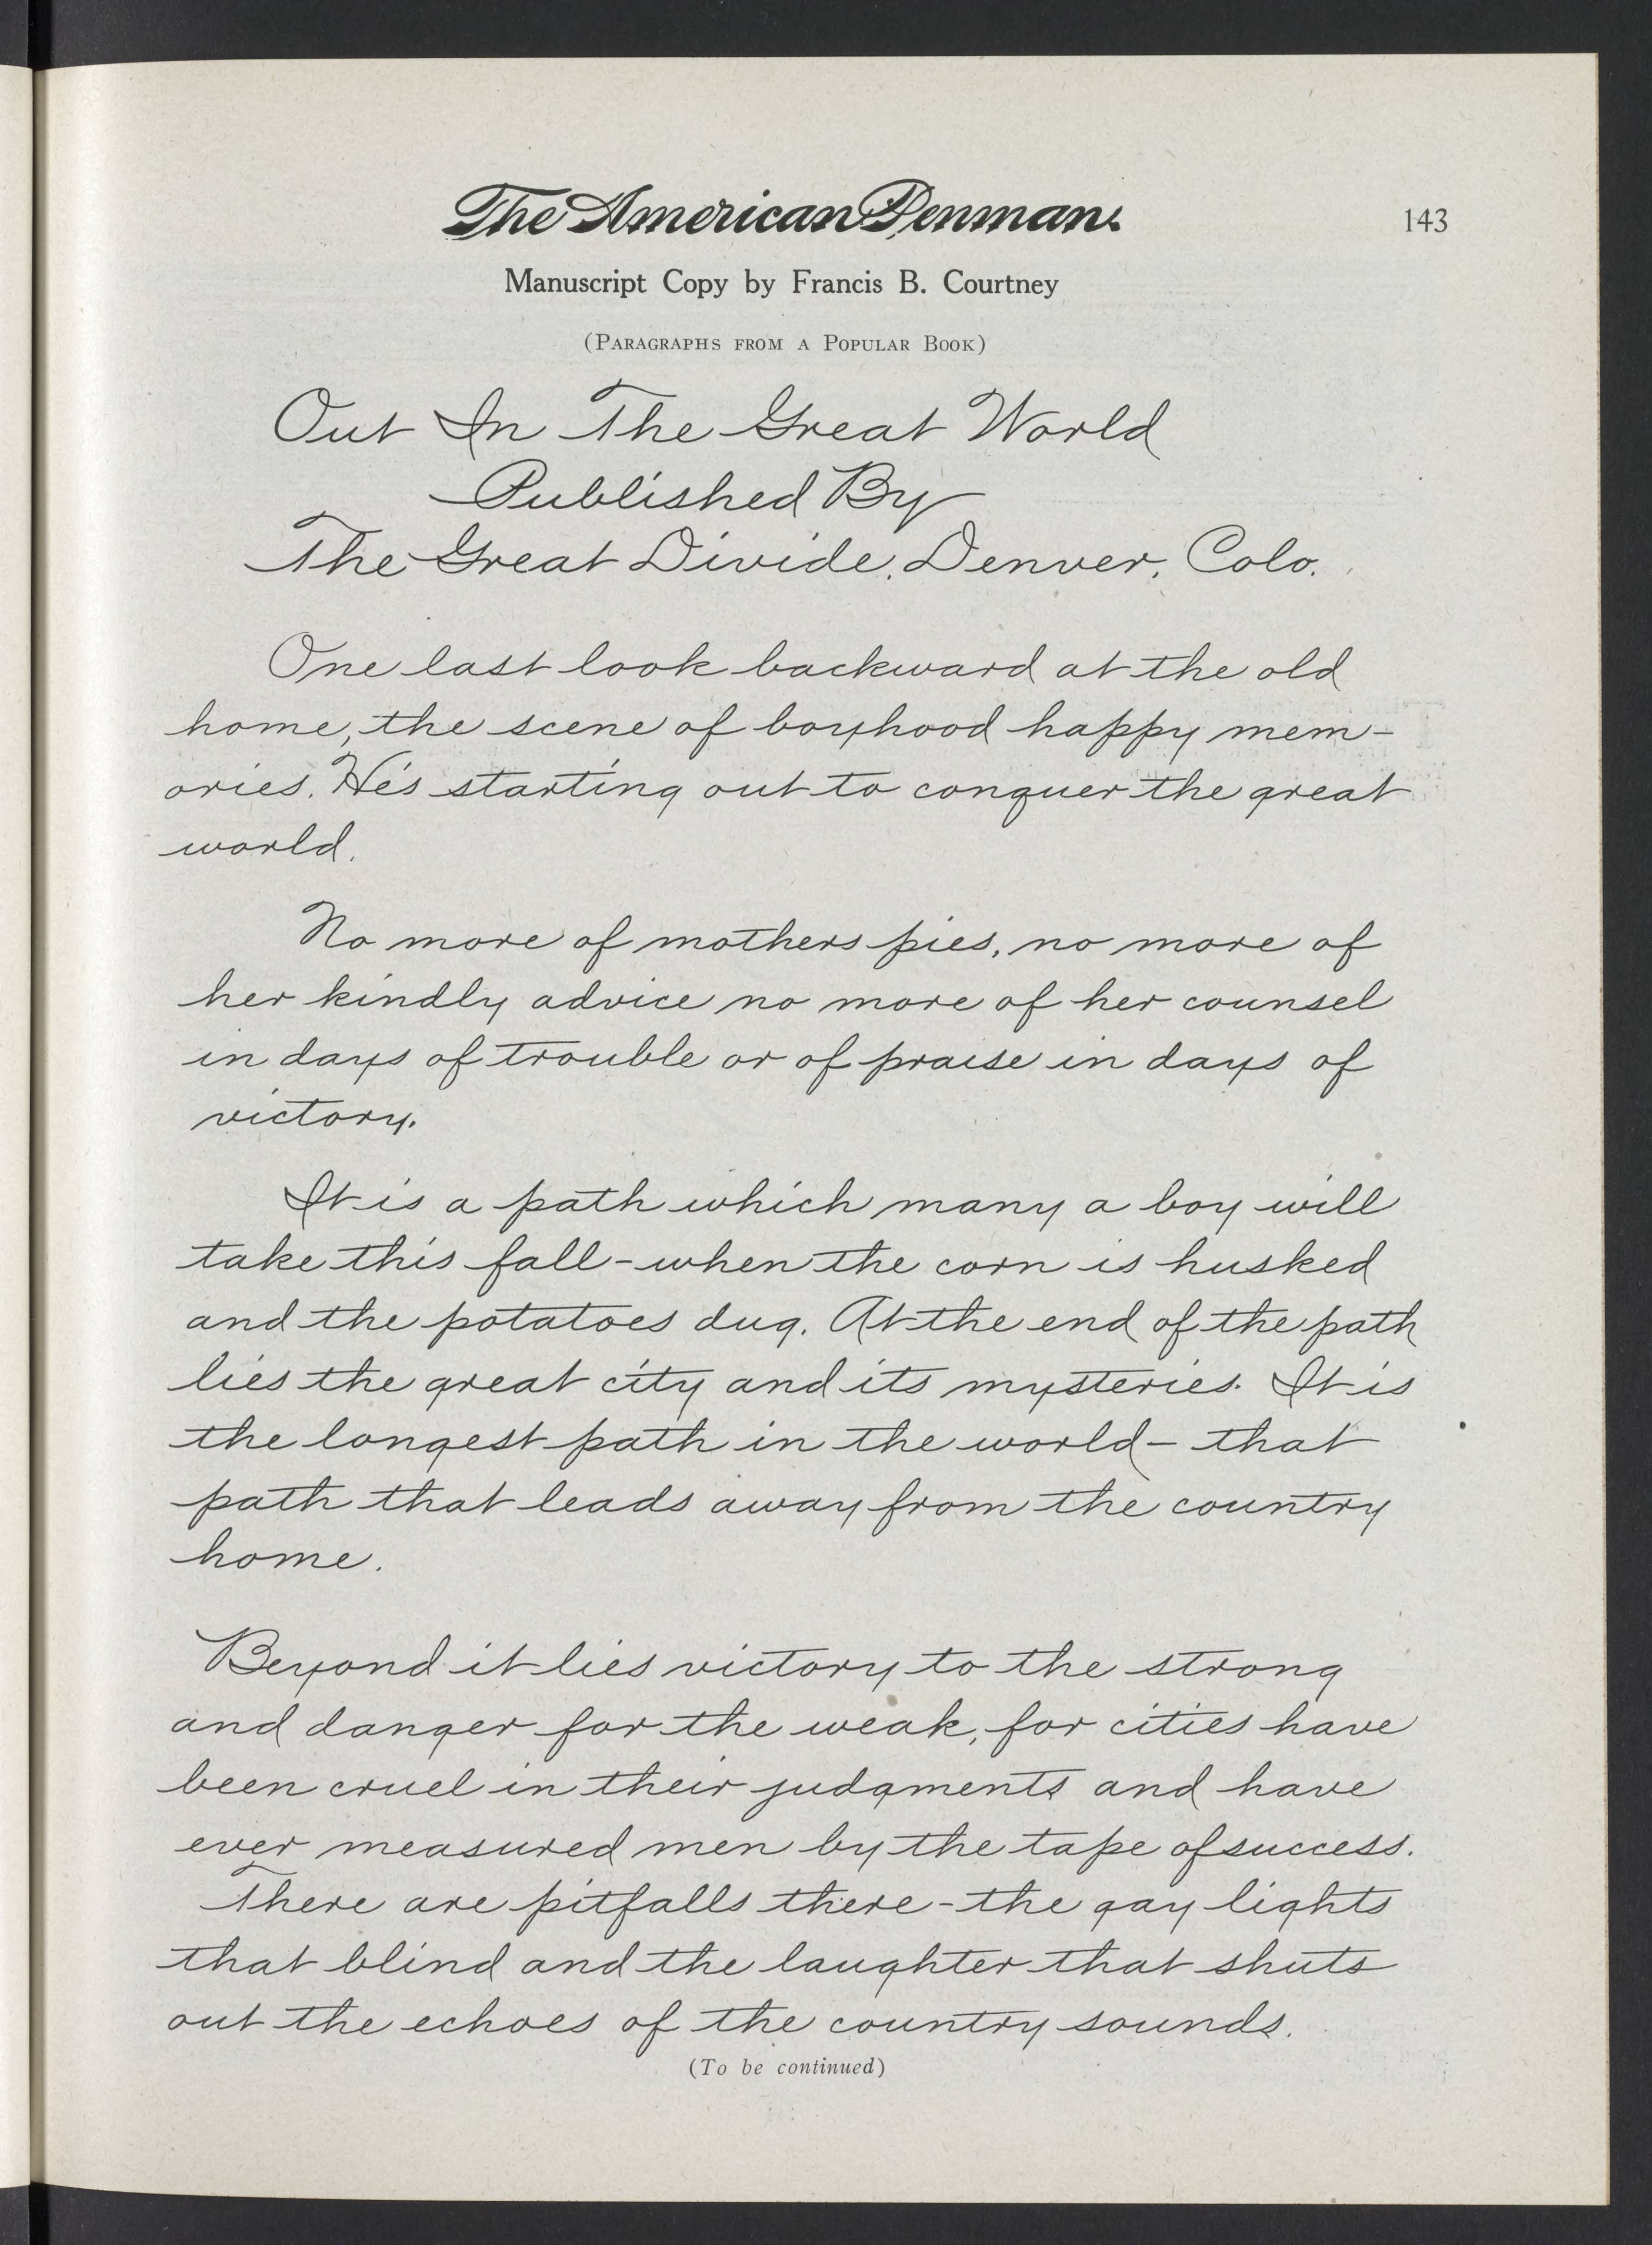 The American Penman
143
Manuscript Copy by Francis B. Courtney
(Paragraphs from a Popular Book)
Out In The Great World
Published By
The Great Divide, Denver, Colo.
One last look backward at the old
home, the scene of boyhood happy mem-
ories. He's starting out to conquer the great
world.
No more of mothers pies, no more of
her kindly advice no more of her counsel
in days of trouble or of praise in days of
victory.
It is a path which many a boy will
take this fall - when the corn is husked
and the potatoes dug. At the end of the path
lies the great city and its mysteries. It is
the longest path in the world - that
path that leads away from the country
home.
Beyond it lies victory to the strong
and danger for the weak, for cities have
been cruel in their judgments and have
ever measured men by the tape of success.
There are pitfalls there - the gay lights
that blind and the laughter that shuts
out the echoes of the country sounds.
(To be continued)